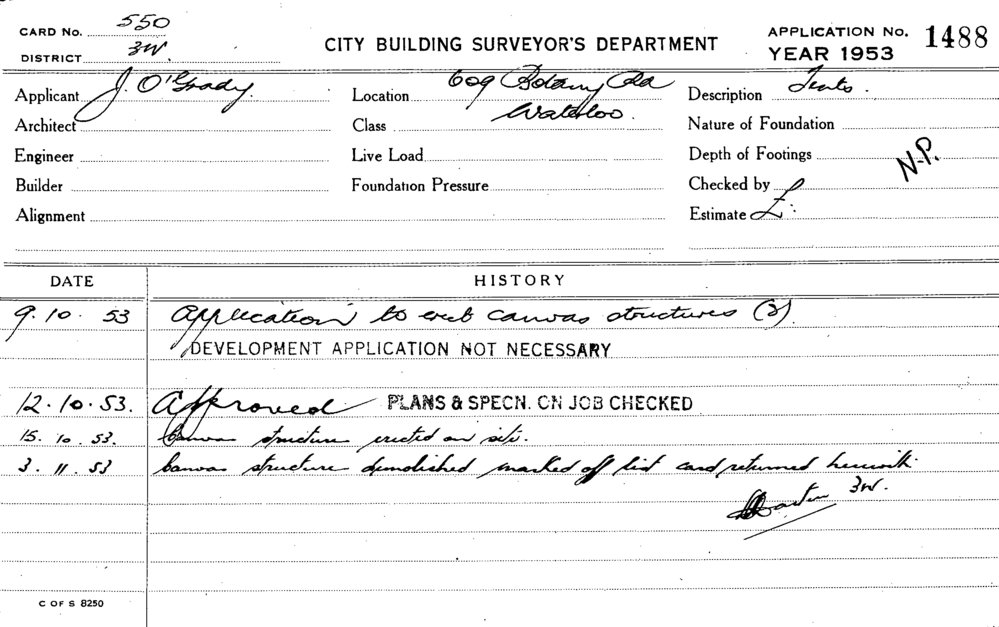 CARD No. 550
DISTRICT 3W.
CITY BUILDING SURVEYOR'S DEPARTMENT
APPLICATION No. 1488
YEAR 1953
Applicant J. O'Grady.
Location 609 Botany Rd
Waterloo.
Description Tents.
Architect
Class
Nature of Foundation
Engineer
Live Load
Depth of Footings
N.P.
Builder
Foundation Pressure
Checked by
Alignment
Estimate £ :
DATE HISTORY
9. 10. 53 Application to erect canvas structures (2).
DEVELOPMENT APPLICATION NOT NECESSARY
12. 10. 53. Approved PLANS & SPECN. ON JOB CHECKED
15. 10. 53. Canvas structure erected on site.
3. 11. 53 Canvas structure demolished marked off list card returned herewith.
3W.
C OF S 8250